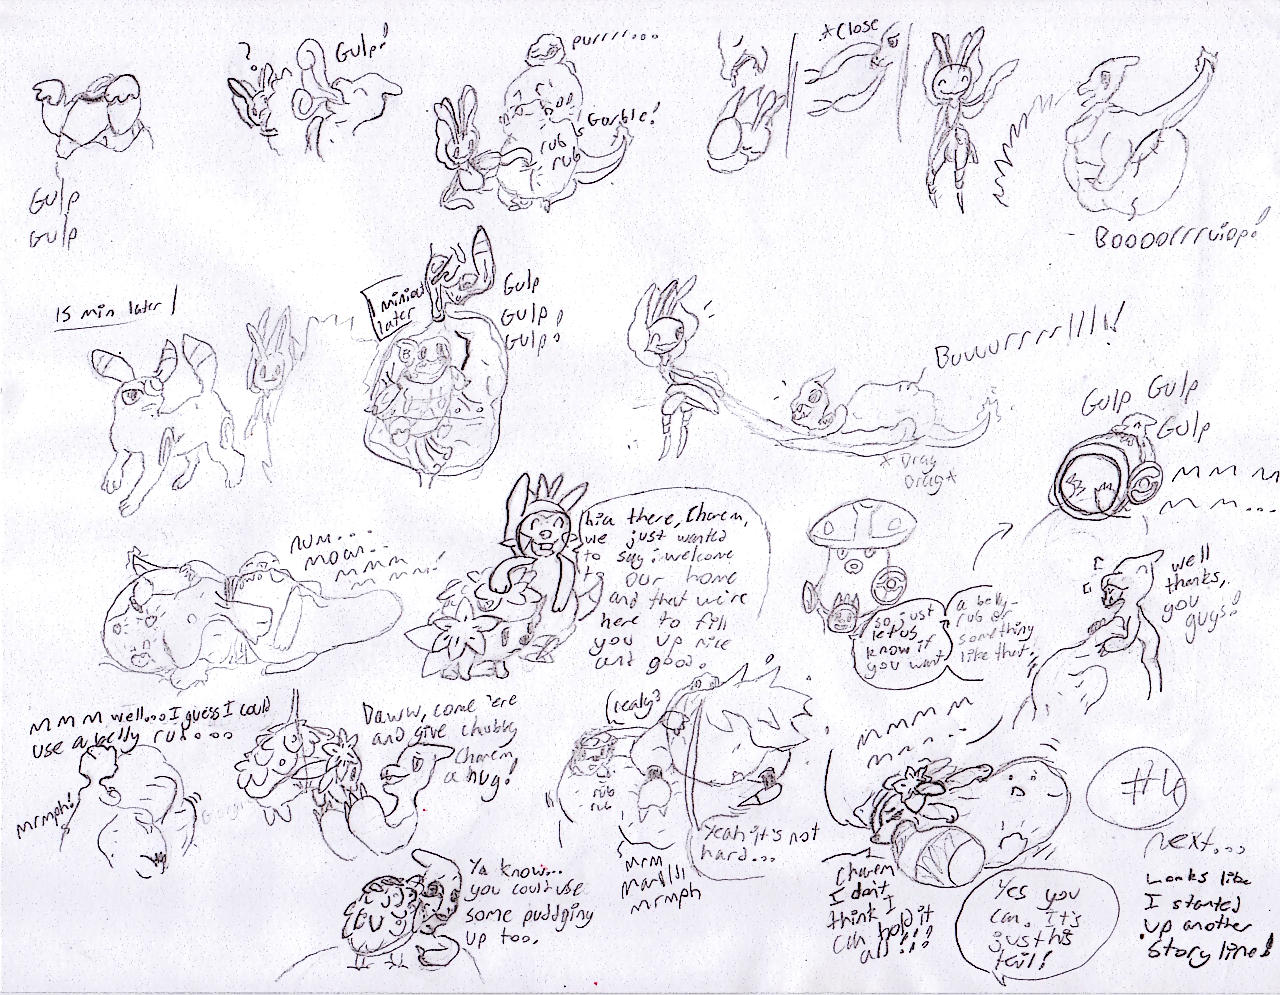 Gulp
Gulp
?
Gulp!
purrr....
Gurble!
rub
rub
*Close
Boooorrrruiop!
15 min later!
1 miniout
later
Gulp
Gulp!
Gulp!
Buuurrrrlll!!
*Drag
Drag*
Gulp Gulp
Gulp
MMMM
MM...
num...
moar...
mmm
mmm!
hia there, Charem,
we just wanted
to say: welcome
to our home
and that we're
here to fill
you up nice
and good.
so just
let us
know if
you want
a belly-
rub or
something
like that.
well
thanks,
you
guys!
MMM well...I guess I could
use a belly rub....
mrmph!
Daww, come 'ere
and give chubby
Charem
a hug!
(realy?
rub
rub
Yeah it's not
hard...
mrm
mrmph
MMMM
Ya know...
you could use
some pudging
up too.
Charem
I don't
think I
can hold it
all!!!
Yes you
can. It's
just his
tail!
#4
next...
Looks like
I started
up another
story line!